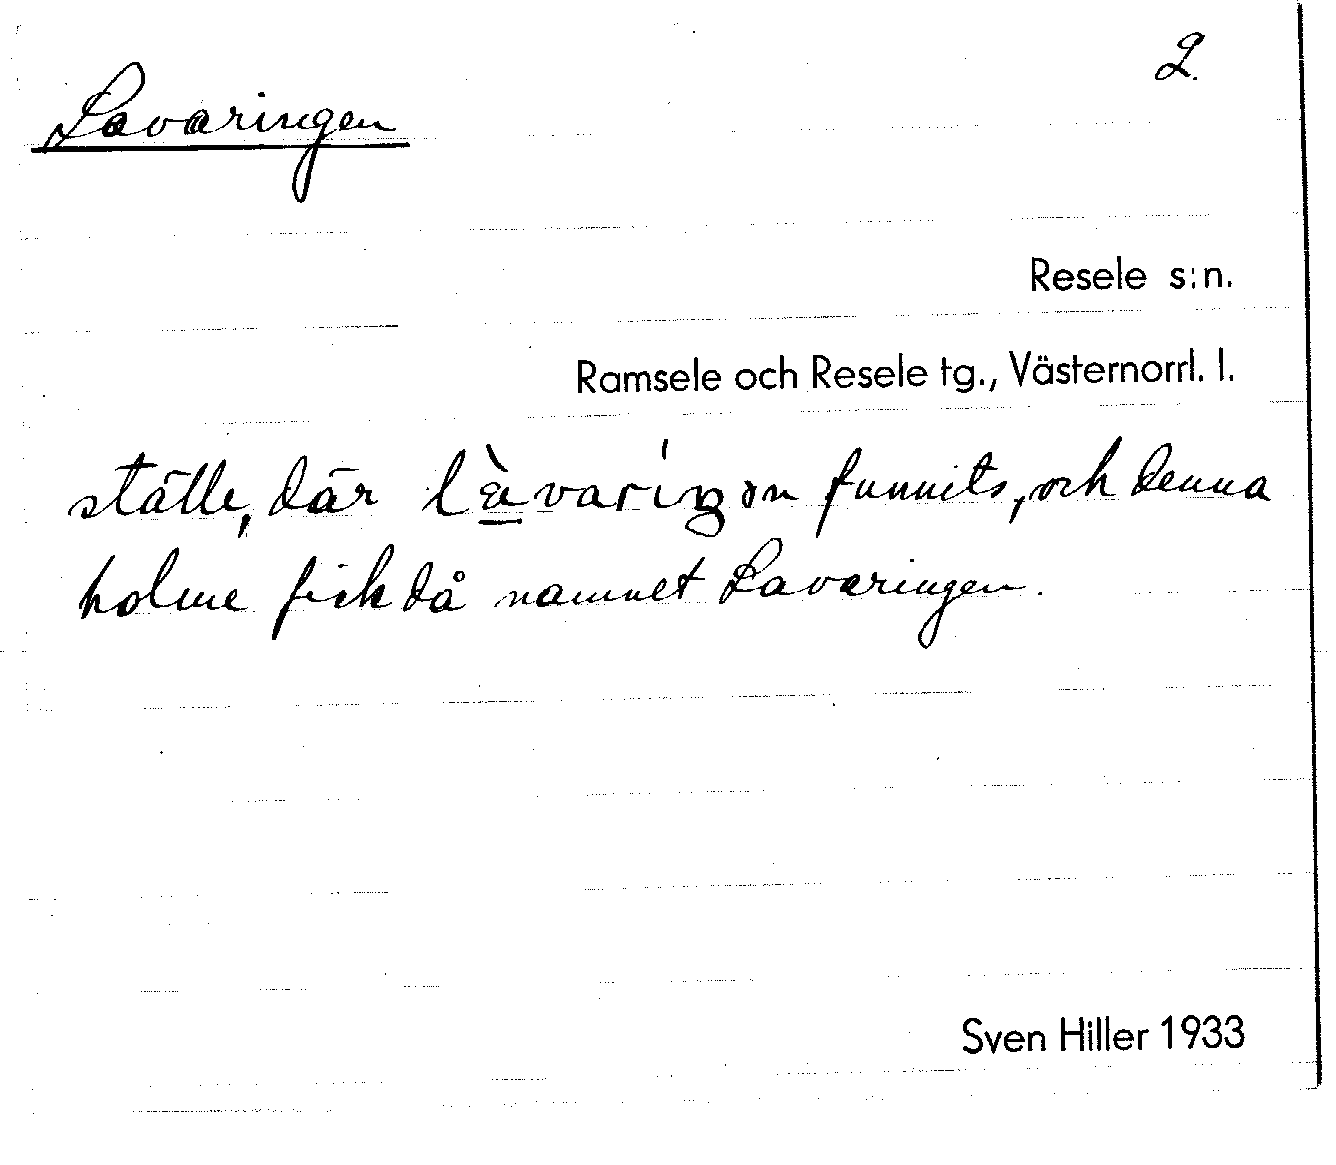 2.
Lavaringen
Resele s:n.
Ramsele och Resele tg., Västernorrl. l.
ställe, där l<u>à</u>varíŋən funnits, och denna
holme fick då namnet Lavaringen.
Sven Hiller 1933